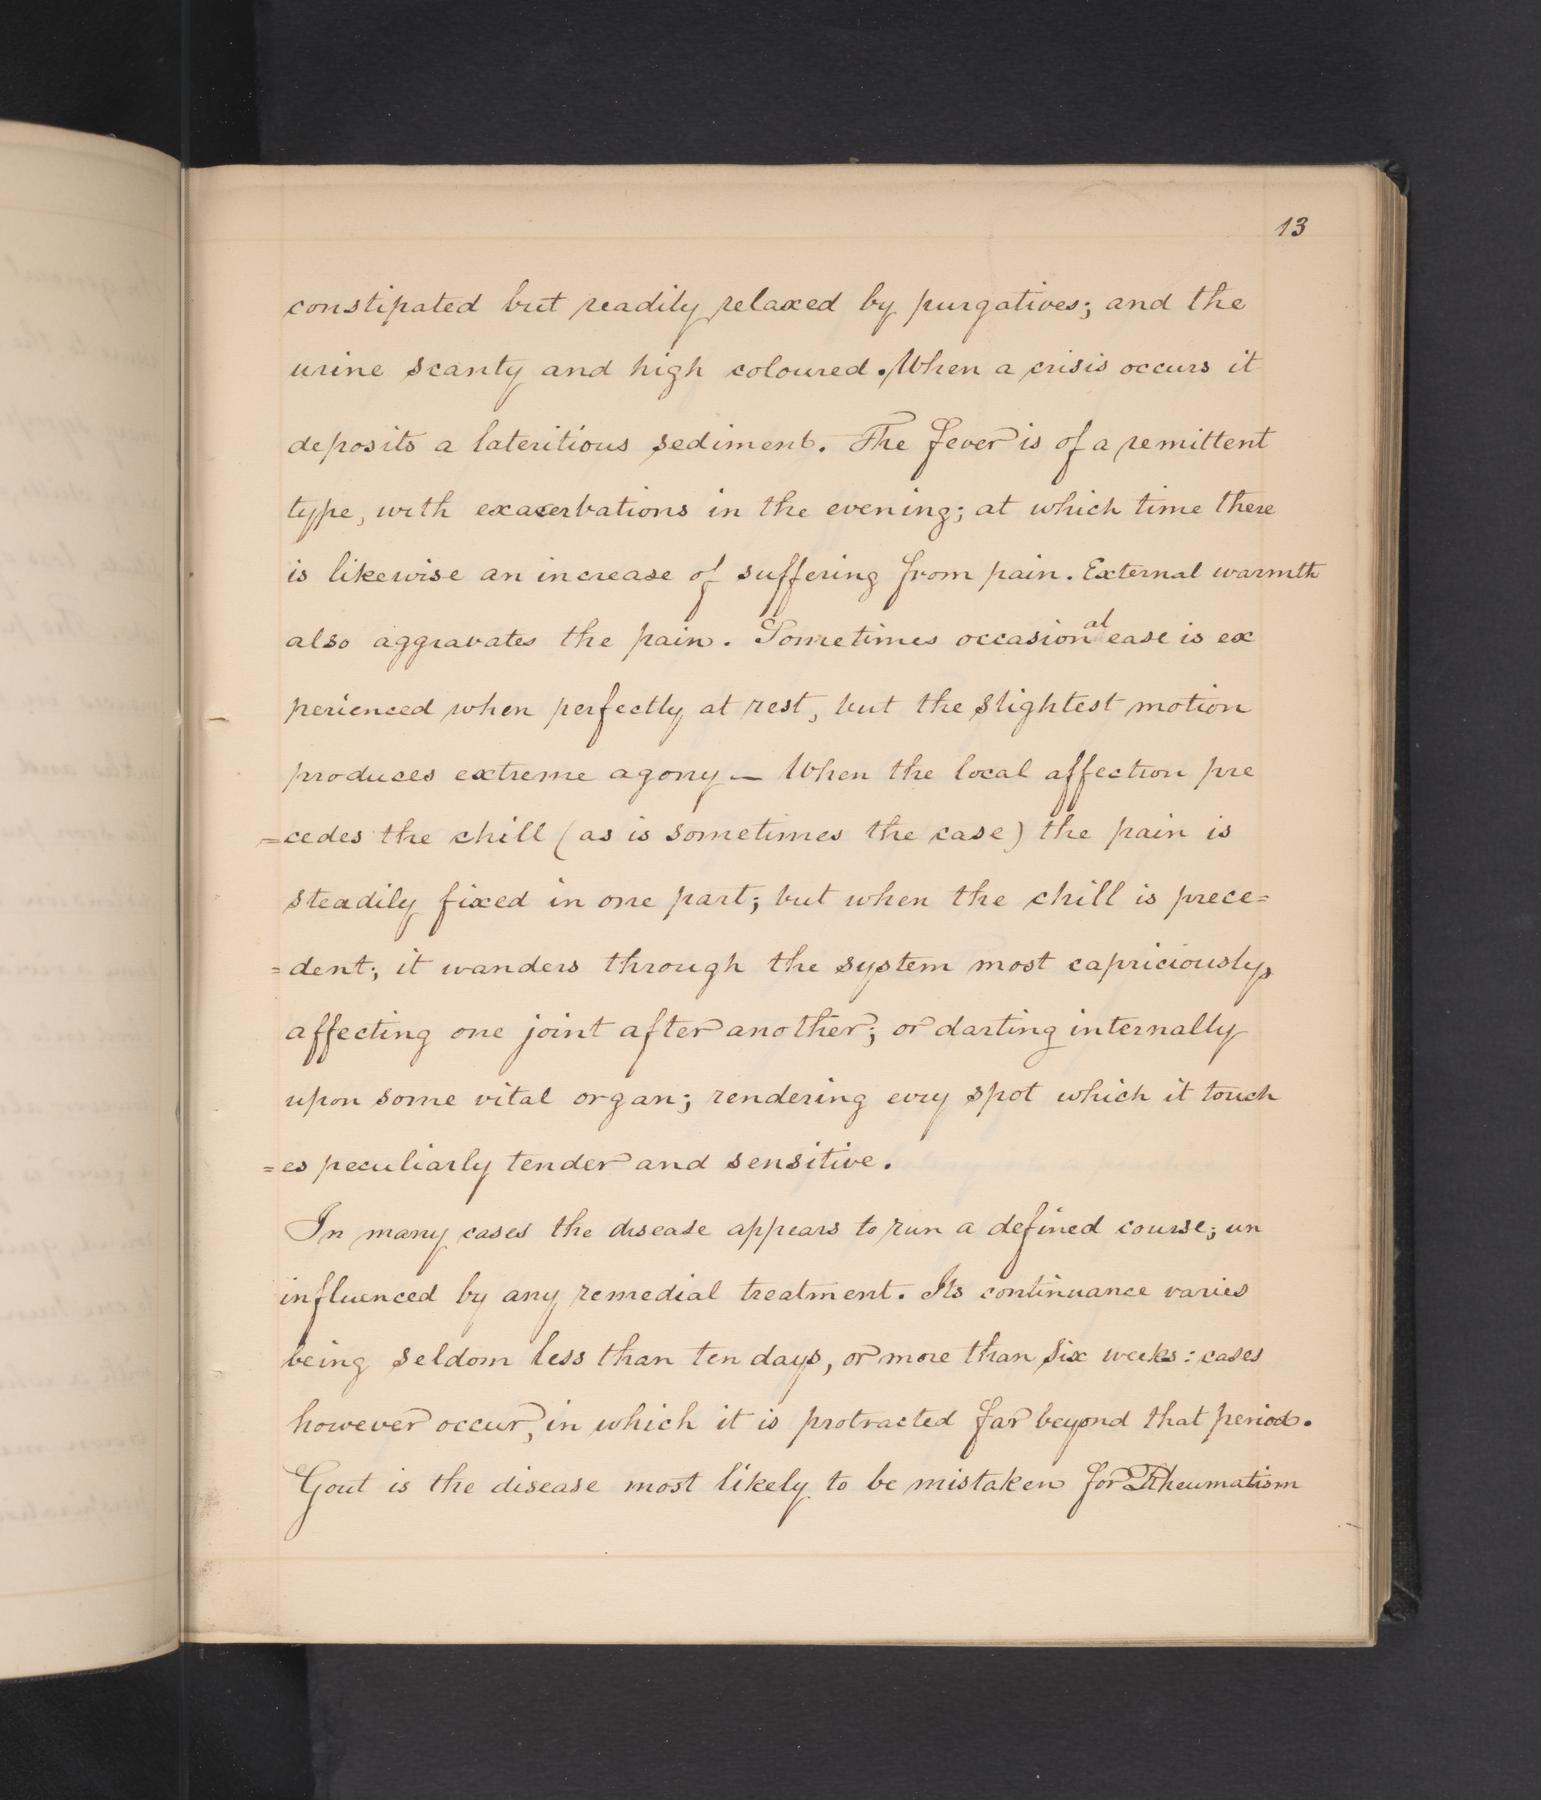 13
constipated but readily relaxed by purgatives; and the
urine scanty and high coloured. When a crisis occurs it
deposits a lateritious sediment. The fever is of a remittent
type, with exacerbations in the evening; at which time there
is likewise an increase of suffering from pain. External warmth
also aggravates the pain. Sometimes occasional ease is ex
perienced when perfectly at rest, but the slightest motion
produces extreme agony — When the local affection pre
=cedes the chill (as is sometimes the case) the pain is
steadily fixed in one part; but when the chill is prece=
=dent; it wanders through the system most capriciously,
affecting one joint after another; or darting internally
upon some vital organ; rendering evry spot which it touch
=es peculiarly tender and sensitive.
In many cases the disease appears to run a defined course; un
influenced by any remedial treatment. Its continuance varies
being seldom less than ten days, or more than six weeks: cases
however occur, in which it is protracted far beyond that period.
Gout is the disease most likely to be mistaken for Rheumatism